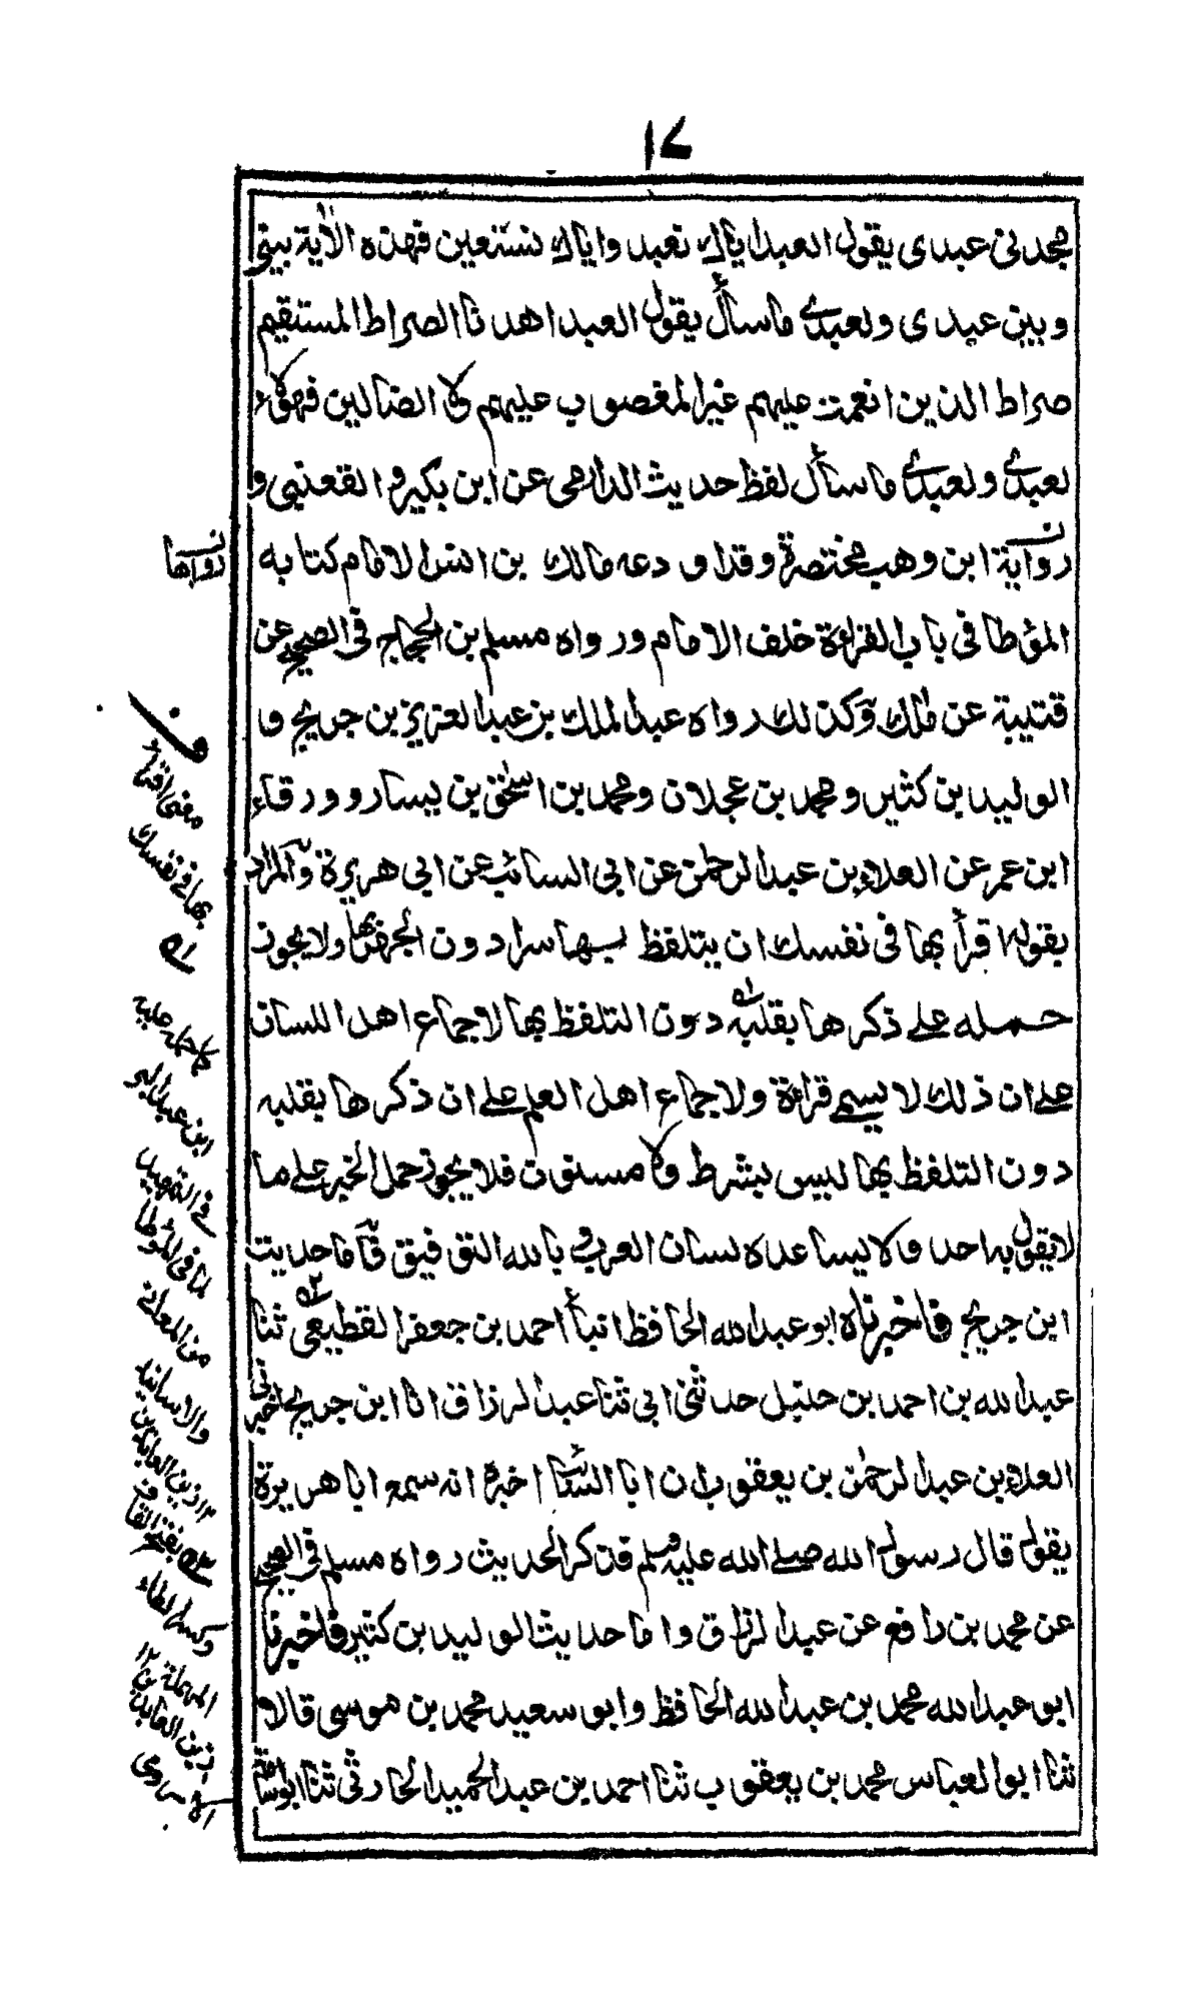 ١٧
مجدني عبدى يقول العبد اياك نعبد واياك نستعين فهذه الأية بيني
وبين عبدى ولعبدى ما سأل يقول العبد اهدنا الصراط المستقيم
صراط الذين انعمت عليهم غير المغضوب عليهم ولا الضالين فهؤلاء
لعبدى ولعبدى ما سأل لفظ حديث الدارمى عن ابن بكير والقعنبى و
رواية ابن وهب مختصرة وقد اودعه مالك بن انس الامام كتابه
المؤطا فى باب القراءة خلف الامام ورواه مسلم بن الحجاج فى الصحيح عن
قتيبة عن مالك وكذلك رواه عبد الملك بن عبد العزيز بن جريج و
الوليد بن كثير ومحمد بن عجلان ومحمد بن اسحٰق بن يسار وورقاء
ابن عمر عن العلاء بن عبد الرحمٰن عن ابى السائب عن ابى هريرة والمراد
بقوله اقرأ بها فى نفسك ان يتلفظ بها سرا دون الجهر بها ولا يجوز
حمله على ذكرها بقلبه دون التلفظ بها لاجماع اهل اللسان
على ان ذلك لا يسمى قراءة ولاجماع اهل العلم على ان ذكرها بقلبه
دون التلفظ بها ليس بشرط ولا مسنون فلا يجوز حمل الخبر على ما
لا يقول به احد ولا يساعده لسان العرب وبالله التوفيق وأما حديث
ابن جريج فاخبرناه ابو عبد الله الحافظ انبأ احمد بن جعفر القطيعى ثنا
عبد الله بن احمد بن حنبل حدثنى ابى ثنا عبد الرزاق انا ابن جريج اخبرنى
العلاء بن عبد الرحمٰن بن يعقوب ان ابا السائب اخبره انه سمع ابا هريرة
يقول قال رسول الله صلى الله عليه وسلم فذكر الحديث رواه مسلم فى الصحيح
عن محمد بن رافع عن عبد الرزاق واما حديث الوليد بن كثير فاخبرنا
ابو عبد الله محمد بن عبد الله الحافظ وابو سعيد محمد بن موسى قالا
ثنا ابو العباس محمد بن يعقوب ثنا احمد بن عبد الحميد الحارثى ثنا ابو اسامة
رواها
ف
معنى اقرأ
بها فى نفسك
له
كما حمله عليه
ابن عبد البر
فى التمهيد
لما فى المؤطا
من المعانى
والاسانيد
١٢ زين العابدين
٢ه بفتح القاف
وكسر الطاء
المهملة ١٢
زين العابدين